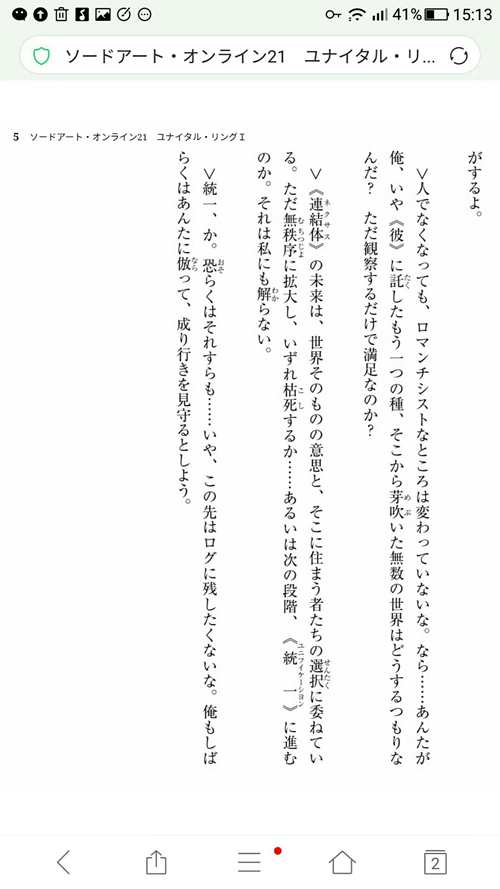 41% 15:13
ソードアート・オンライン21 ユナイタル・リ...
5 ソードアート・オンライン21 ユナイタル・リングⅠ
がするよ。
∨人でなくなっても、ロマンチシストなところは変わっていないな。なら……あんたが
俺、いや《彼》に託したもう一つの種、そこから芽吹いた無数の世界はどうするつもりな
んだ？ ただ観察するだけで満足なのか？
∨《連結体》の未来は、世界そのものの意思と、そこに住まう者たちの選択に委ねてい
る。ただ無秩序に拡大し、いずれ枯死するか……あるいは次の段階、《統一》に進む
のか。それは私にも解らない。
∨統一、か。恐らくはそれすらも……いや、この先はログに残したくないな。俺もしば
らくはあんたに倣って、成り行きを見守るとしよう。
2